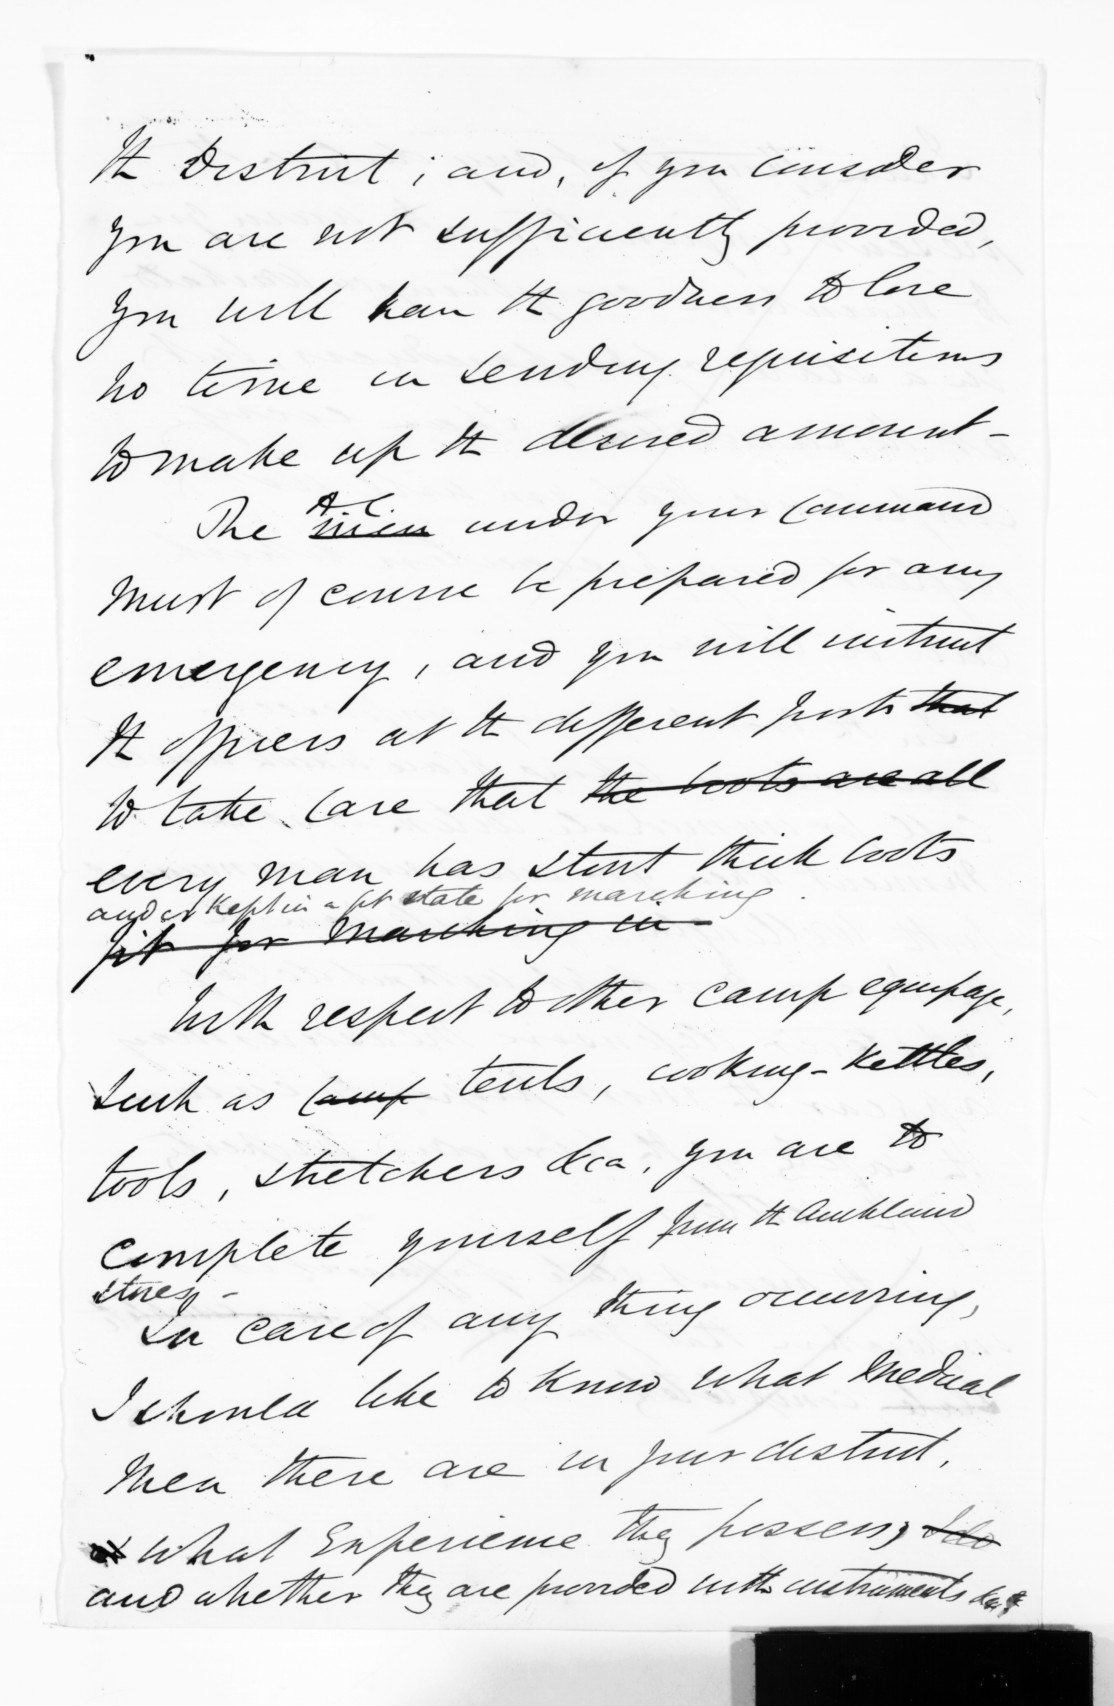 the District; and, if you consider
you are not sufficiently provided,
you will have the goodness to lose
no time in sending requisitions
to make up the desired amount -
A.C.
The men under your command
must of course be prepared for any
emergency, and you will instruct
the officers at the different posts that
to take care that the boots are all
every man has stout thick boots
and is kept in a fit state for marching.
fit for marching in -
With respect to other camp equipage,
such as camp tents, cooking-kettles,
tools, stretchers &ca, you are to
complete yourself from the Auckland
stores -
In case of any thing occurring,
I should like to know what medical
men there are in your district,
what experience they possess,
and whether they are provided with instruments &c